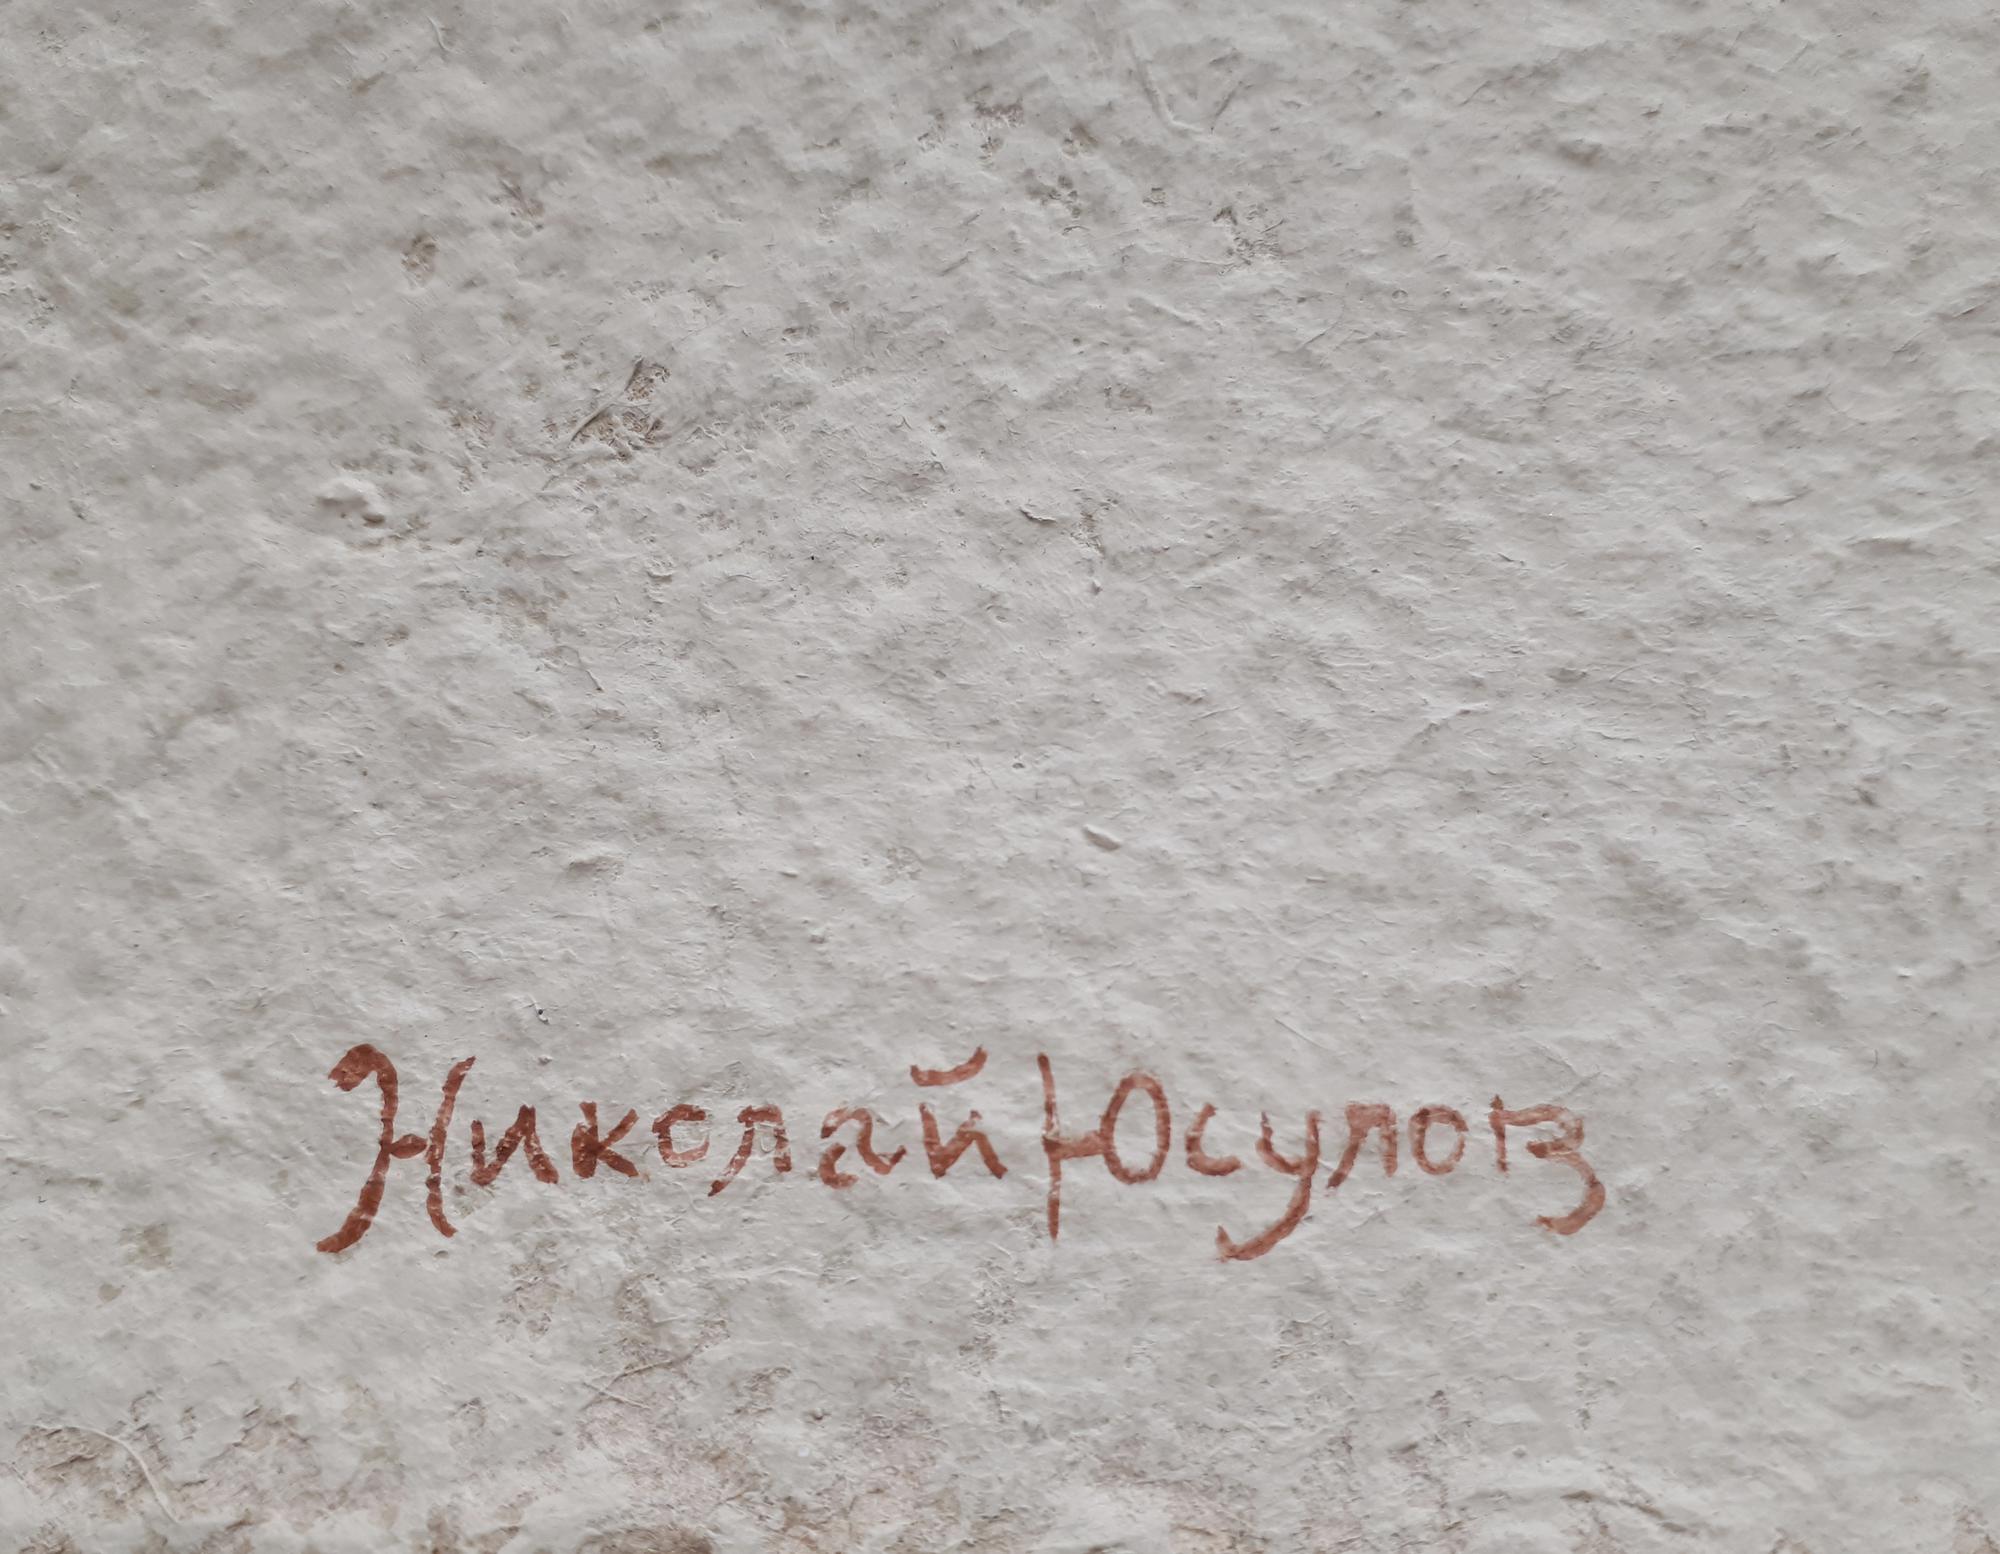 Николай Юсупов